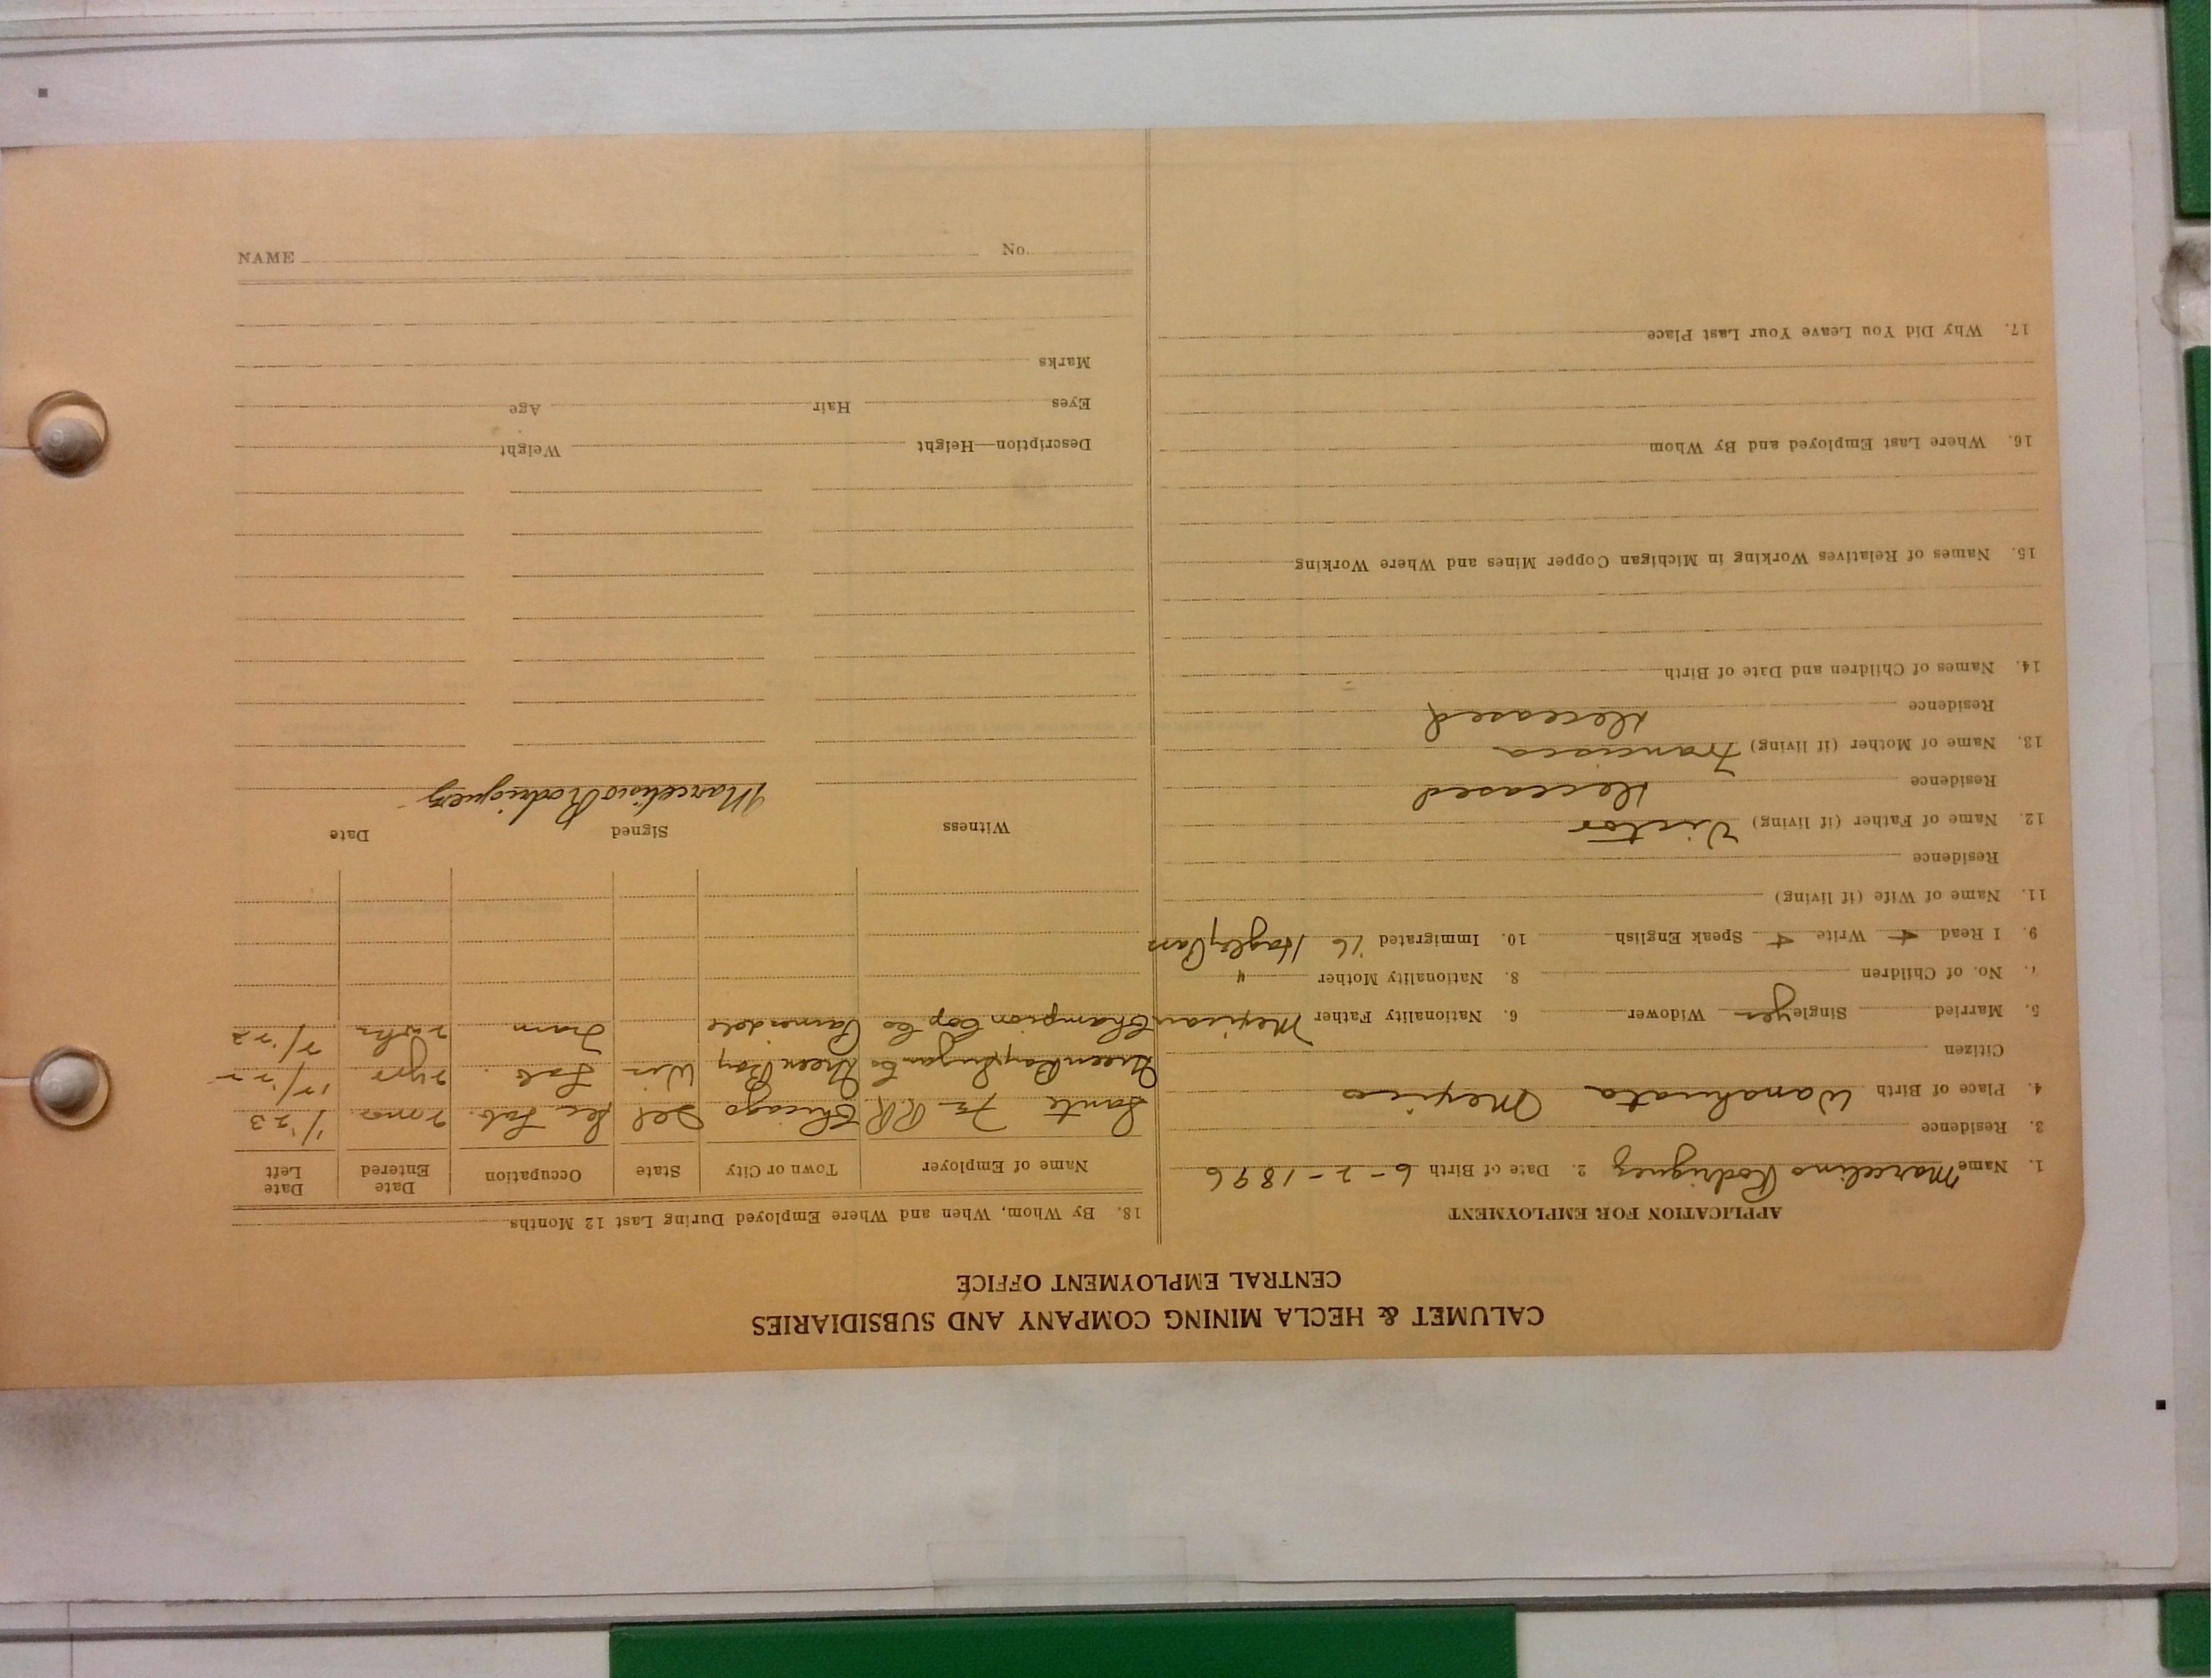 CALUMET & HECLA MINING COMPANY AND SUBSIDIARIES
CENTRAL EMPLOYMENT OFFICE
APPLICATION FOR EMPLOYMENT
1. Name Marcelino Rodriguez 2. Date of Birth 6-2-1896
3. Residence
4. Place of Birth Mexico
Citizen
5. Married Single yes Widower 6. Nationality Father Mexican
7. No. of Children 8. Nationality Mother "
9. I Read Write Speak English 10. Immigrated '16
11. Name of Wife (if living)
Residence
12. Name of Father (if living) Victor
Residence Deceased
13. Name of Mother (if living) Francisca
Residence Deceased
14. Names of Children and Date of Birth
15. Names of Relatives Working in Michigan Copper Mines and Where Working
16. Where Last Employed and By Whom
17. Why Did You Leave Your Last Place
18. By Whom, When and Where Employed During Last 12 Months
Name of Employer Town or City State Occupation Date Entered Date Left
Sante Fe RR Chicago Lab. 2 mos. 1/23
Green Bay Sugar Co Green Bay Wis Lab.
Champion Cop Co Painesdale Tram
Witness Signed Date
Marcelino Rodriguez
Description—Height Weight
Eyes Hair Age
Marks
NAME No.